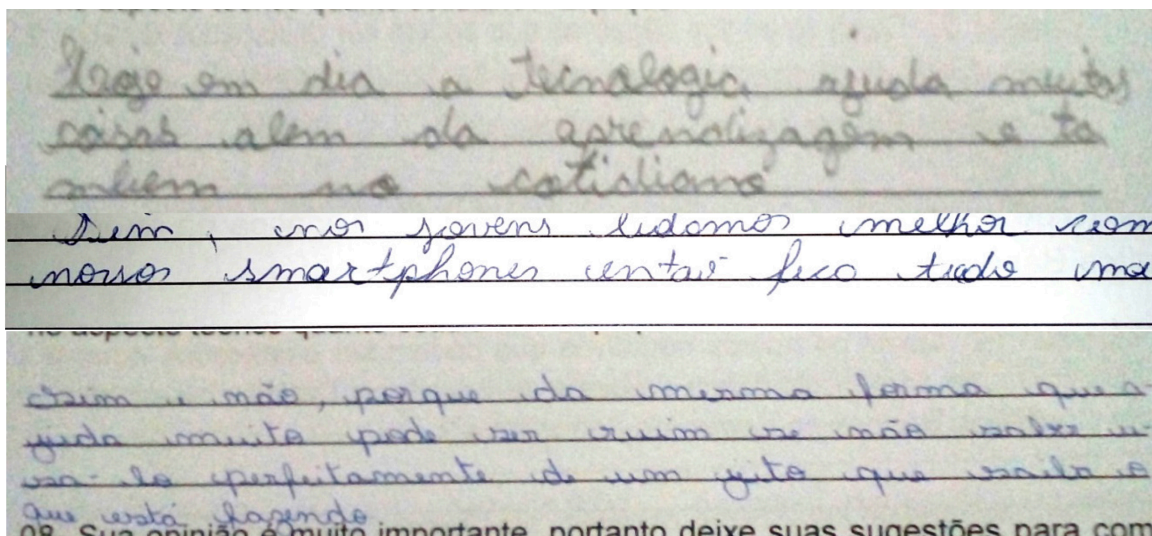 Hoje em dia a tecnologia ajuda muitas
coisas alem da aprendizagem e ta
mbem no cotidiano
Sim, nos jovens lidamos melhor com
nossos smartphones entao fica tudo ma
no aspecto
Sim e não, porque da mesma forma que a-
juda muito pode ser ruim se não saber u-
sa-lo perfeitamente de um jeito que saiba o
que está fazendo
08. Sua opinião é muito importante, portanto deixe suas sugestões para com